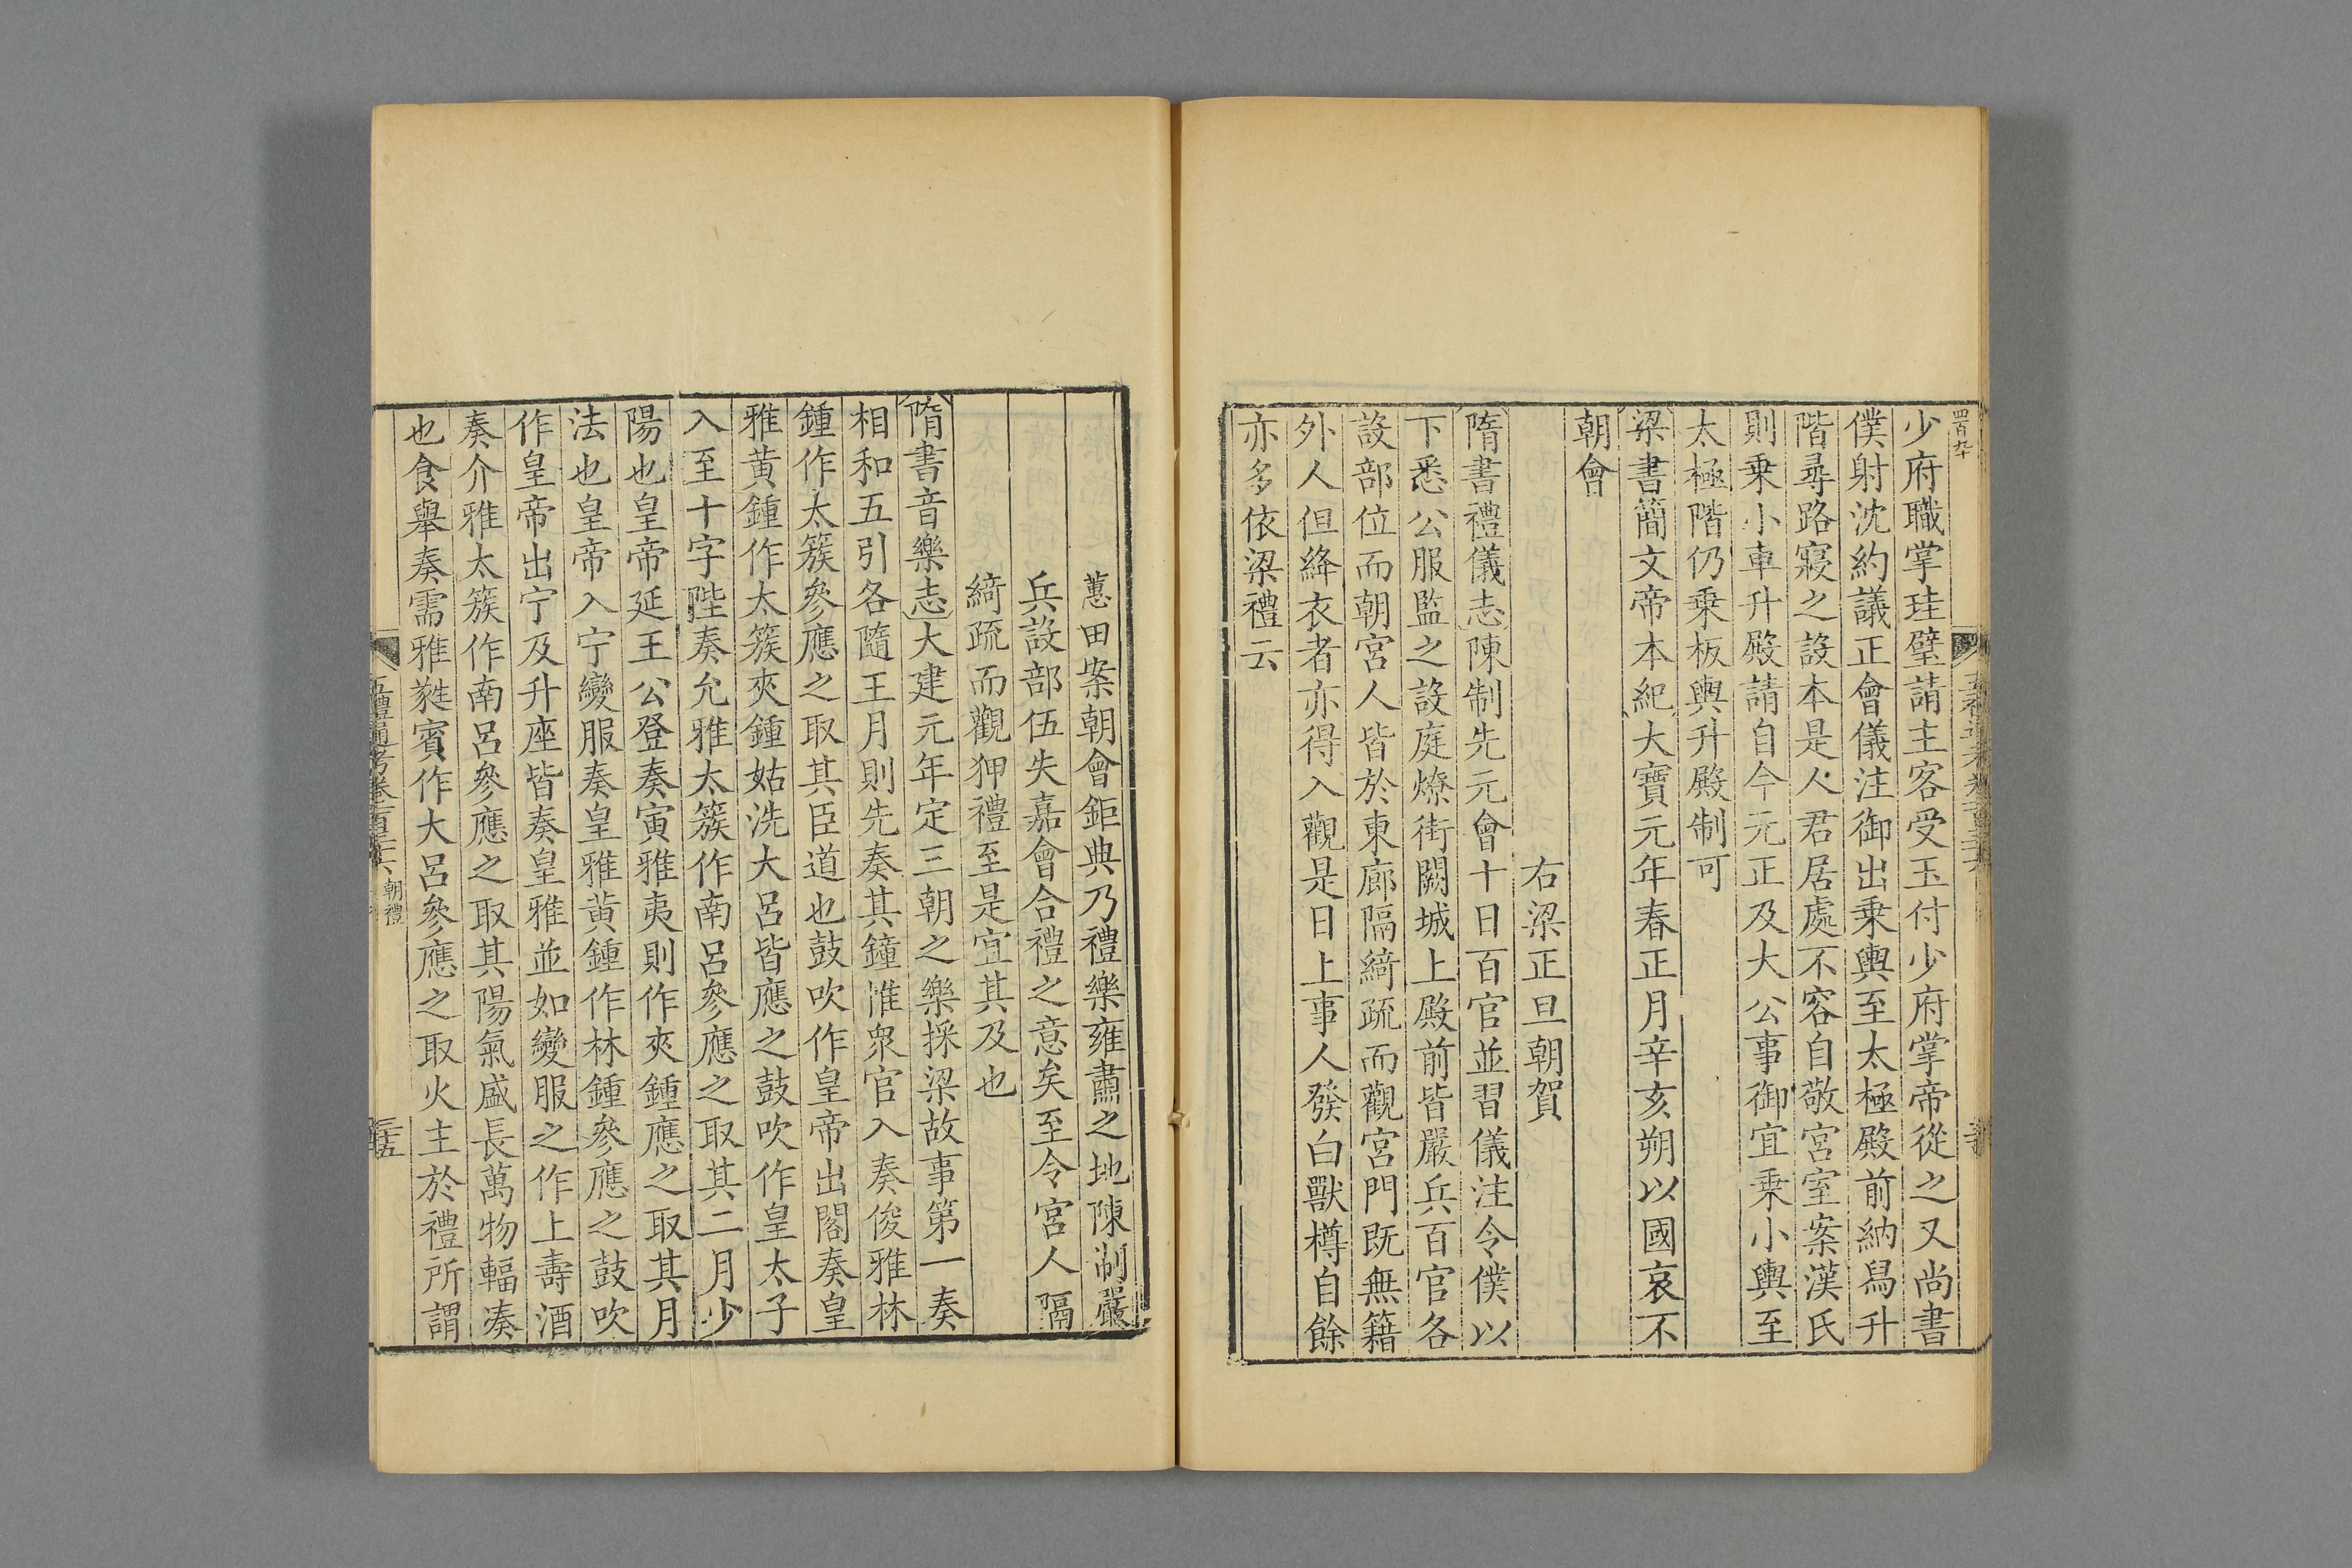 少府職掌珪璧請主客受玉付少府掌帝從之又尚書
僕射沈約議正會儀注御出乗輿至太極殿前納舄升
階尋路寢之設本是人君居處不容自敬宮室案漢氏
則乗小車升殿請自今元正及大公事御宜乗小輿至
太極階仍乗板輿升殿制可
梁書簡文帝本紀大寶元年春正月辛亥朔以國哀不
朝會
右梁正旦朝賀
隋書禮儀志陳制先元會十日百官並習儀注令僕以
下悉公服監之設庭燎街闕城上殿前皆嚴兵百官各
設部位而朝宮人皆於東廊隔綺疏而觀宮門既無籍
外人但絳衣者亦得入觀是日上事人發白獸樽自餘
亦多依梁禮云
蕙田案朝會鉅典乃禮樂雍肅之地陳制嚴
兵設部伍失嘉會合禮之意矣至令宮人隔
綺疏而觀狎禮至是宜其及也
隋書音樂志大建元年定三朝之樂採梁故事第一奏
相和五引各隨王月則先奏其鐘惟衆官入奏俊雅林
鍾作太簇參應之取其臣道也鼓吹作皇帝出閤奏皇
雅黄鍾作太簇夾鍾姑洗大呂皆應之鼓吹作皇太子
入至十字陛奏允雅太簇作南呂參應之取其二月少
陽也皇帝延王公登奏寅雅夷則作夾鍾應之取其月
法也皇帝入宁變服奏皇雅黄鍾作林鍾參應之鼓吹
作皇帝出宁及升座皆奏皇雅並如變服之作上壽酒
奏介雅太簇作南呂參應之取其陽氣盛長萬物輻凑
也食舉奏需雅蕤賓作大呂參應之取火主於禮所謂
五禮通考卷一百三十六 朝禮
三十五